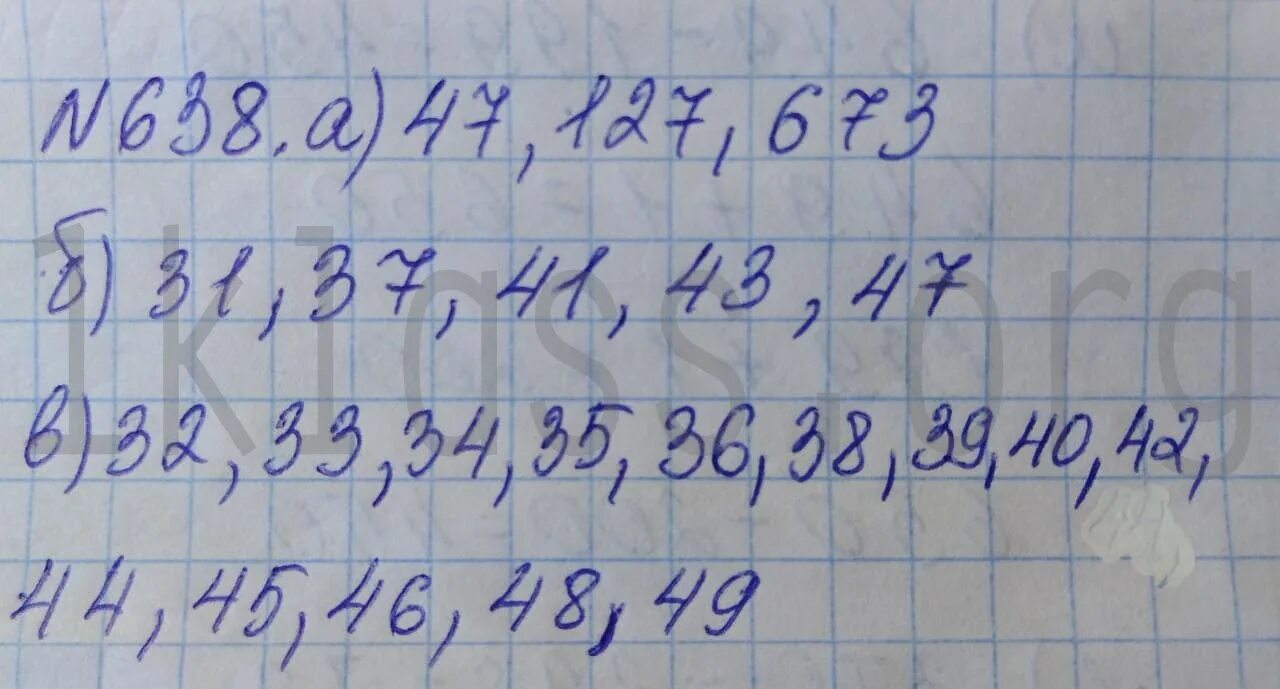 N638. а) 47, 127, 673
б) 31, 37, 41, 43, 47
в) 32, 33, 34, 35, 36, 38, 39, 40, 42,
44, 45, 46, 48, 49
1klass.org